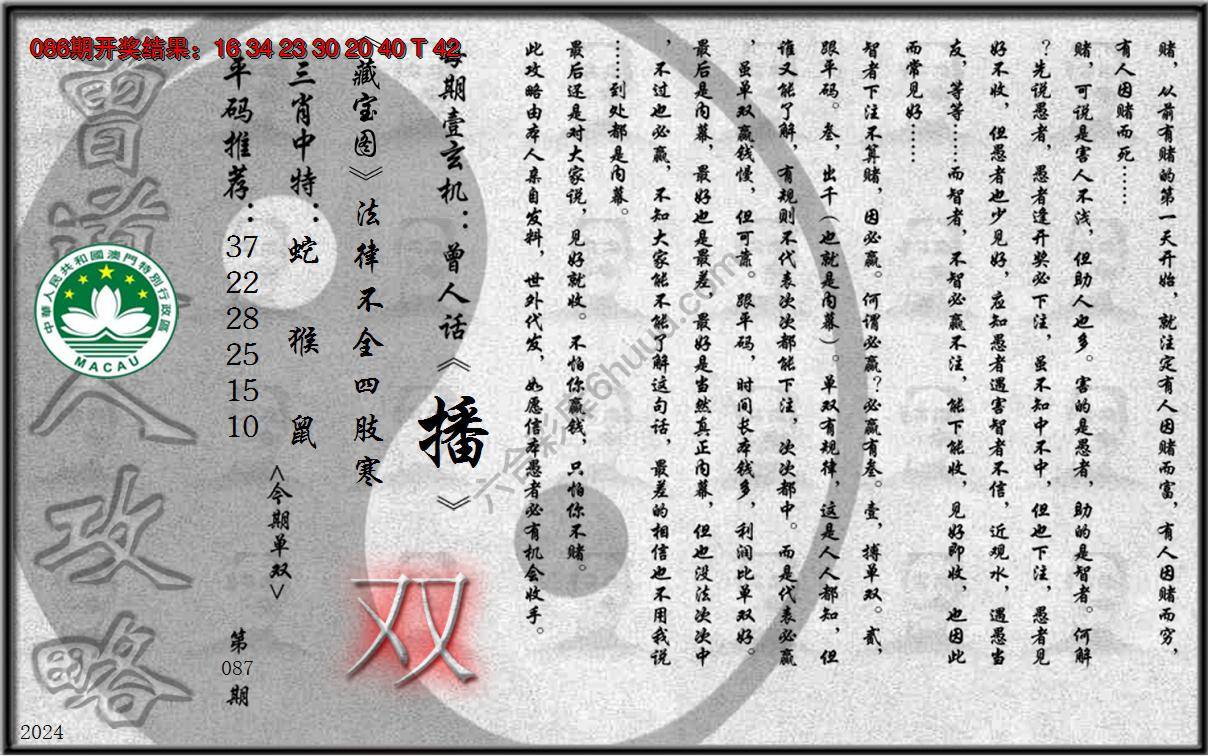 086期开奖结果：16 34 23 30 20 40 T 42
赌，从前有赌的第一天开始，就注定有人因赌而富，有人因赌而穷，
有人因赌而死……
赌，可说是害人不浅，但助人也多。害的是愚者，助的是智者。何解
？先说愚者，愚者逢开奖必下注，虽不知中不中，但也下注，愚者见
好不收，但愚者也少见好，应知愚者遇害智者不信，近观水，遇愚当
友，等等……而智者，不智必赢不注，能下能收，见好即收，也因此
而常见好……
智者下注不算赌，因必赢。何谓必赢？必赢有叁。壹，搏单双。贰，
跟平码。叁，出千（也就是内幕）。单双有规律，这是人人都知，但
谁又能了解，有规则不代表次次都能下注，次次都中。而是代表必赢
，虽单双赢钱慢，但可靠。跟平码，时间长本钱多，利润比单双好。
最后是内幕，最好也是最差，最好是当然真正内幕，但也没法次次中
，不过也必赢，不知大家能不能了解这句话，最差的相信也不用我说
……到处都是内幕。
最后还是对大家说，见好就收。不怕你赢钱，只怕你不赌。
此攻略由本人亲自发料，世外代发，如愿信本愚者必有机会收手。
每期壹玄机：曾人话《播》
《藏宝图》法律不全四肢寒
双
三肖中特：蛇 猴 鼠
<今期单双>
平码推荐：37 22 28 25 15 10
第087期
曾道人攻略
中華人民共和國澳門特別行政區
MACAU
六合彩库6huuu.com
2024